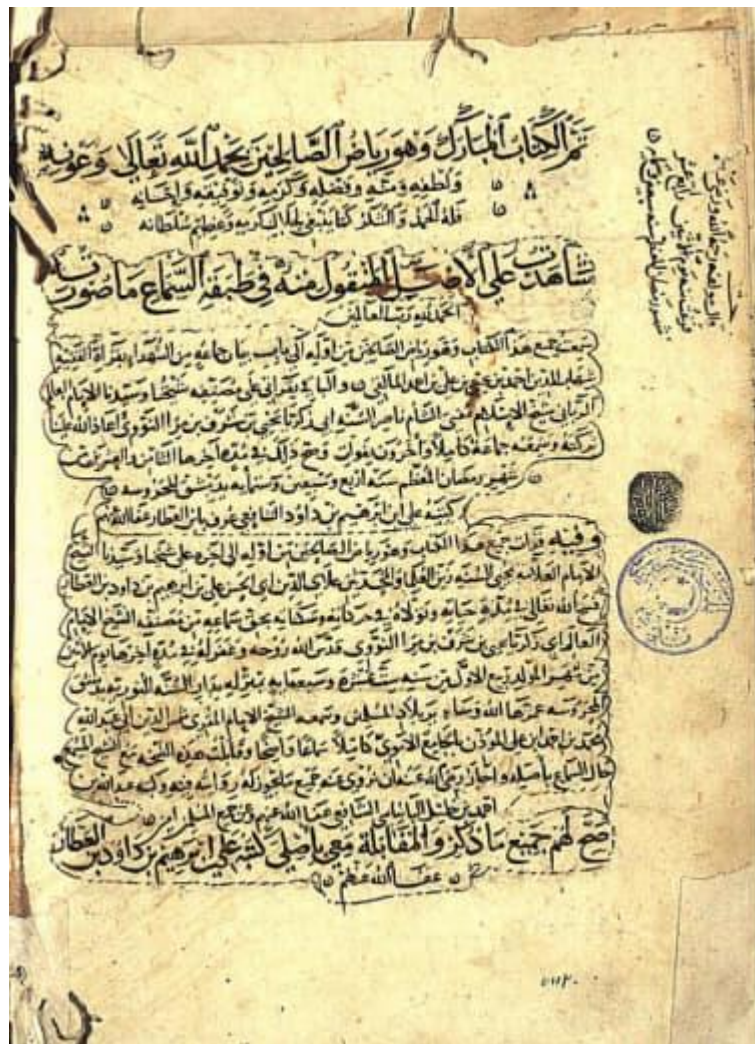 تم الكتاب المبارك وهو رياض الصالحين بحمد الله تعالى وعونه
ولطفه ومنه وفضله وكرمه وتوفيقه وإحسانه
فله الحمد والشكر كما ينبغي لجلاله الكريم وعظيم سلطانه
شاهدت على الأصل المنقول منه في طبقة السماع ما صورته
الحمد لله رب العالمين
سمع جميع هذا الكتاب وهو رياض الصالحين من أوله إلى باب بيان جماعة من الشهداء بقراءة الفقيه
شهاب الدين أحمد بن علي بن أحمد المالقي والباقي بقراءتي على مصنفه شيخنا وسيدنا الإمام العالم
الرباني شيخ الإسلام مفتي الشام ناصر السنة أبي زكريا يحيى بن شرف بن مرا النووي أعاد الله علينا
بركته وسمعه جماعة كاملا وآخرون بفوات وصح ذلك في مدة آخرها الثامن والعشرين من
شهر رمضان المعظم سنة أربع وسبعين وستمائة بدمشق المحروسة
كتبه علي بن إبراهيم بن داود الشافعي عرف بابن العطار عفا الله عنهم
وفيه قرأت جميع هذا الكتاب وهو رياض الصالحين من أوله إلى آخره على شيخنا وسيدنا الشيخ
الإمام العلامة محيي السنة زين الفرق علاي الدين أبي الحسن علي بن إبراهيم بن داود بن العطار
فسح الله تعالى في مدة حياته وتولاه في حركاته وسكناته بحق سماعه من مصنفه الشيخ الإمام
العالم أبي زكريا يحيى بن شرف بن مرا النووي قدس الله روحه وغفر له في مدة آخرها يوم الاثنين
من شهر ربيع الأول من سنة وسبعمائة بمنزله بدار السنة النورية بدمشق
المحروسة عمرها الله وسائر بلاد المسلمين وسمعه الشيخ الإمام المقرئ شمس الدين أبي عبد الله
محمد بن أحمد بن علي المؤذن بالجامع الأموي كاملا وقابلت هذه النسخة مع الشيخ المسمع
حال السماع بأصله وأجاز رضي الله عنه أن نروي عنه جميع ما يجوز له روايته وكتبه عبد الله بن
أحمد بن خليل الشافعي عفا الله عنهم وعن جميع المسلمين
صح لهم جميع ما ذكر والمقابلة معي بأصلي كتبه علي بن إبراهيم بن داود بن العطار
عفا الله عنهم